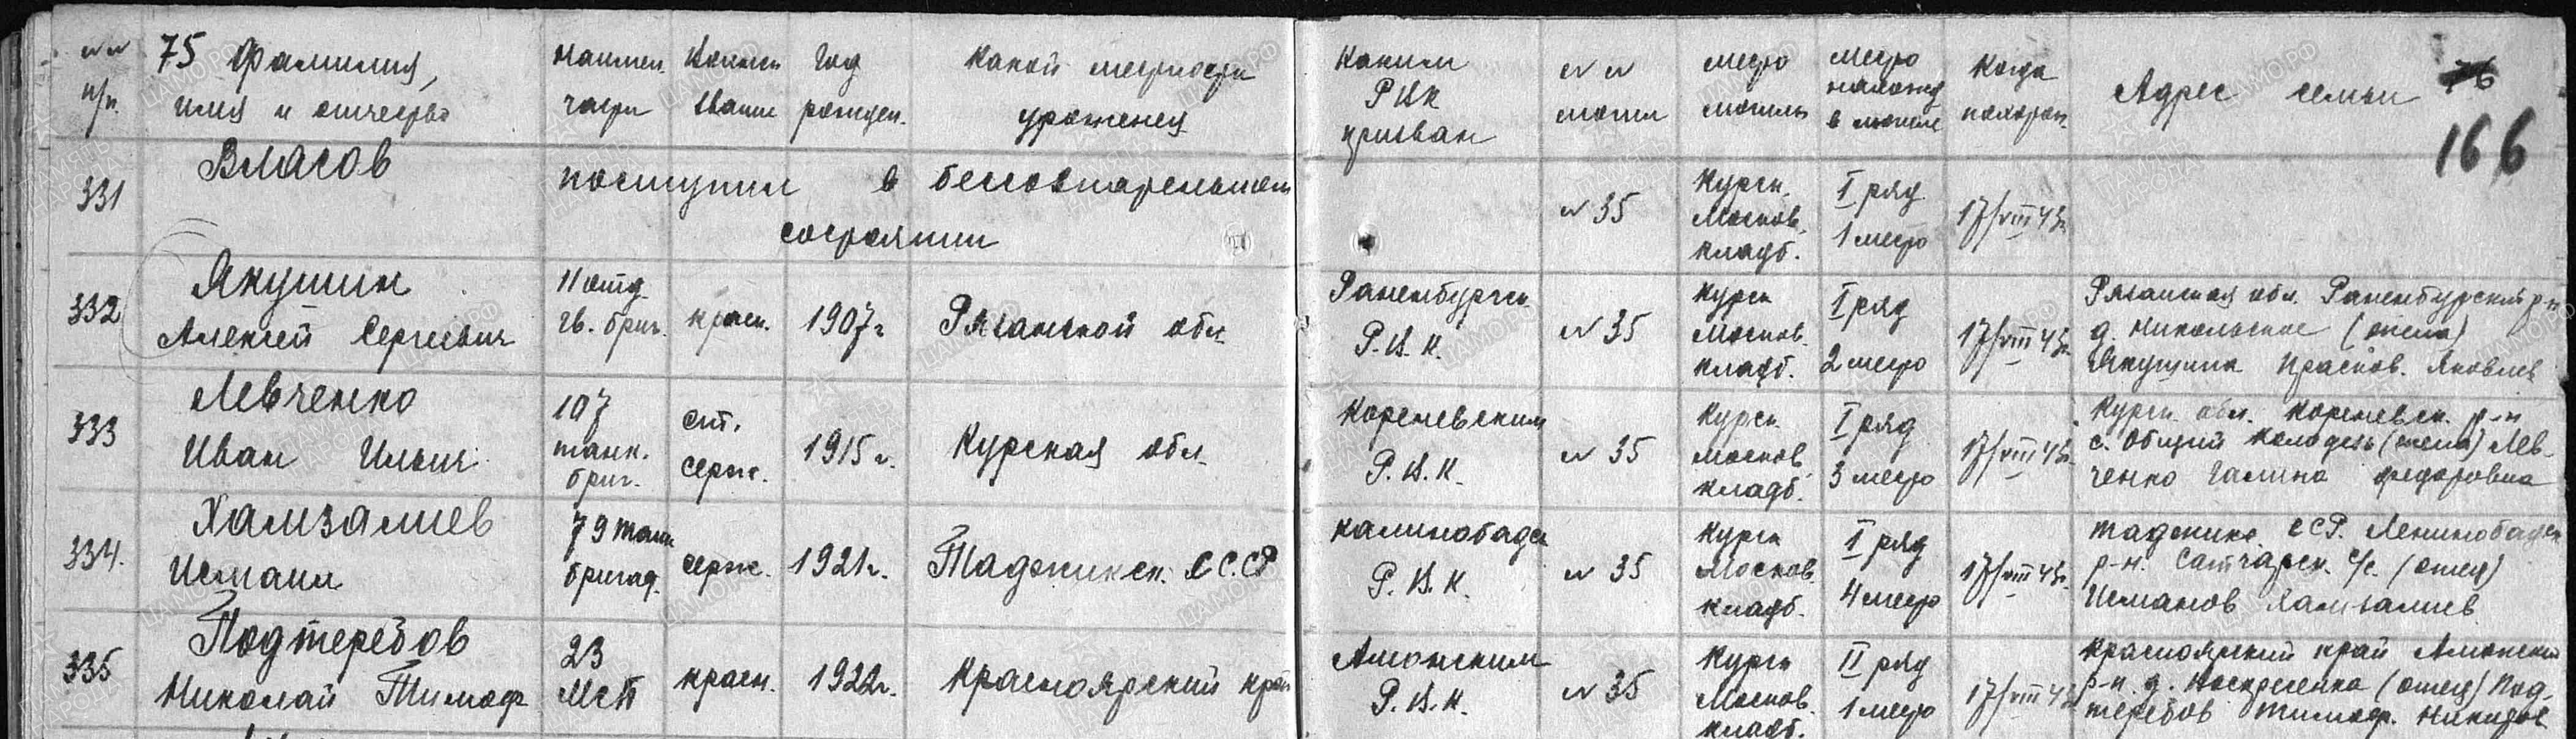 №№ п/п. 75 Фамилия, имя и отчество Наимен. части Воинск. звание Год рожден. Какой местности уроженец Каким РВК призван №№ могил место могилы место наложд в могиле Когда похорон. Адрес семьи 76
166
331 Власов поступил в бессознательном состоянии № 35 Курск. Москов. кладб. I ряд 1 место 17/VIII 43г.
332 Якушин Алексей Сергеевич 11 отд. гв. бриг. красн. 1907г Рязанской обл. Раненбургск Р.В.К. № 35 Курск Москов. кладб. I ряд 2 место 17/VIII 43г. Рязанская обл. Раненбургский р-н д. Никольское (жена) Якушина Прасков. Яковлев
333 Левченко Иван Ильич 107 танк. бриг. ст. серж. 1915г. Курская обл. Кореневским Р.В.К. № 35 Курск Москов кладб. I ряд 3 место 17/VIII 43г. Курск. обл. Кореневск. р-н с. Общий Колодезь (жена) Левченко Галина Федоровна
334. Хамзалиев Исмаил 79 танк бригад. серж. 1921г. Таджикск. ССР Р.В.К. № 35 Курск Москов. кладб. I ряд 4 место 17/VIII 43г. Таджикс. ССР. Ленинобадск р-н. с/с. (отец) Исманов Хамзалиев
335 Подтеребов Николай Тимоф. 23 МСБ красн. 1922г. Красноярский край Р.В.К. № 35 Курск Москов. кладб. II ряд 1 место 17/VIII 43 Красноярский край р-н. д. (отец) Подтеребов Тимоф.